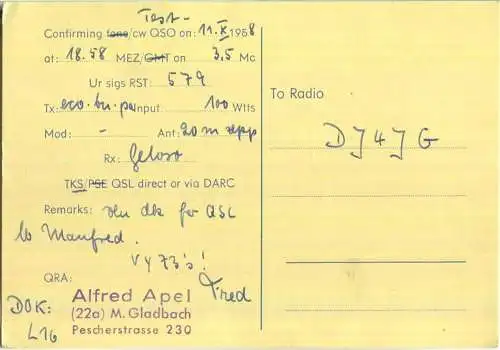 Test -
Confirming fone/cw QSO on: 11. X 1958
at: 18.58 MEZ/GMT on 3,5 Mc
Ur sigs RST: 579
Tx: eco. bu. pa Input 100 Wtts
Mod: - Ant: 20 m
Rx: Geloso
TKS/PSE QSL direct or via DARC
Remarks: dk fer QSL
lb Manfred.
vy 73's!
QRA: Fred
Alfred Apel
(22a) M. Gladbach
Pescherstrasse 230
DOK:
L16
To Radio
DJ4JG